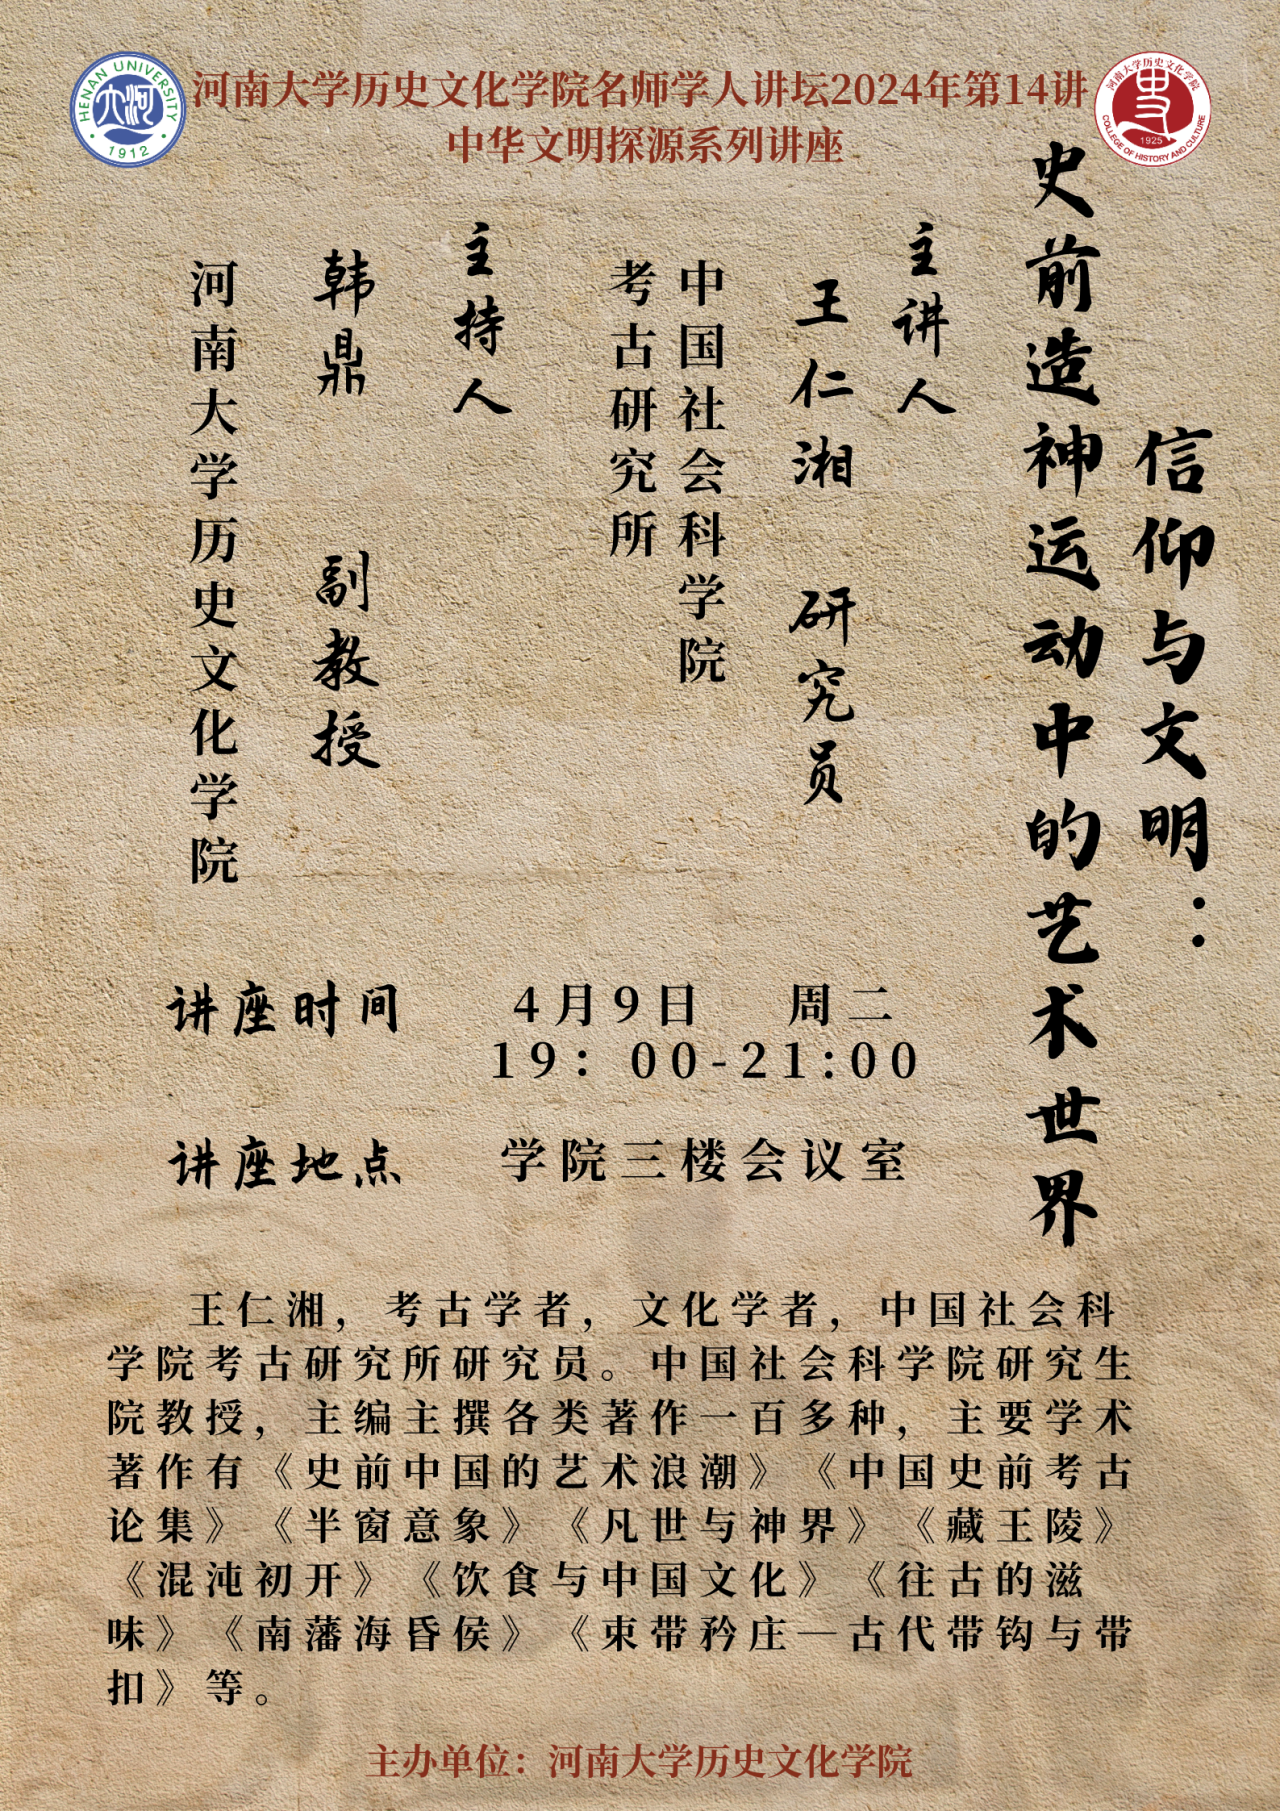 HENAN UNIVERSITY
1912
河南大学历史文化学院名师学人讲坛2024年第14讲
中华文明探源系列讲座
河南大学历史文化学院
1925
COLLEGE OF HISTORY AND CULTURE
信仰与文明：
史前造神运动中的艺术世界
主讲人
王仁湘 研究员
中国社会科学院
考古研究所
主持人
韩鼎 副教授
河南大学历史文化学院
讲座时间
4月9日 周二
19：00-21:00
讲座地点
学院三楼会议室
王仁湘，考古学者，文化学者，中国社会科
学院考古研究所研究员。中国社会科学院研究生
院教授，主编主撰各类著作一百多种，主要学术
著作有《史前中国的艺术浪潮》《中国史前考古
论集》《半窗意象》《凡世与神界》《藏王陵》
《混沌初开》《饮食与中国文化》《往古的滋
味》《南藩海昏侯》《束带矜庄—古代带钩与带
扣》等。
主办单位：河南大学历史文化学院